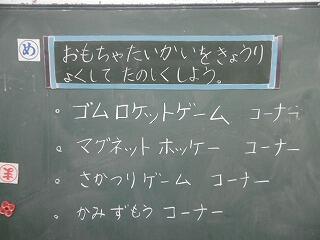 め
おもちゃたいかいをきょうり
ょくして たのしくしよう。
。ゴムロケットゲーム コーナー
。マグネットホッケー コーナー
。さかつりゲーム コーナー
。かみずもうコーナー